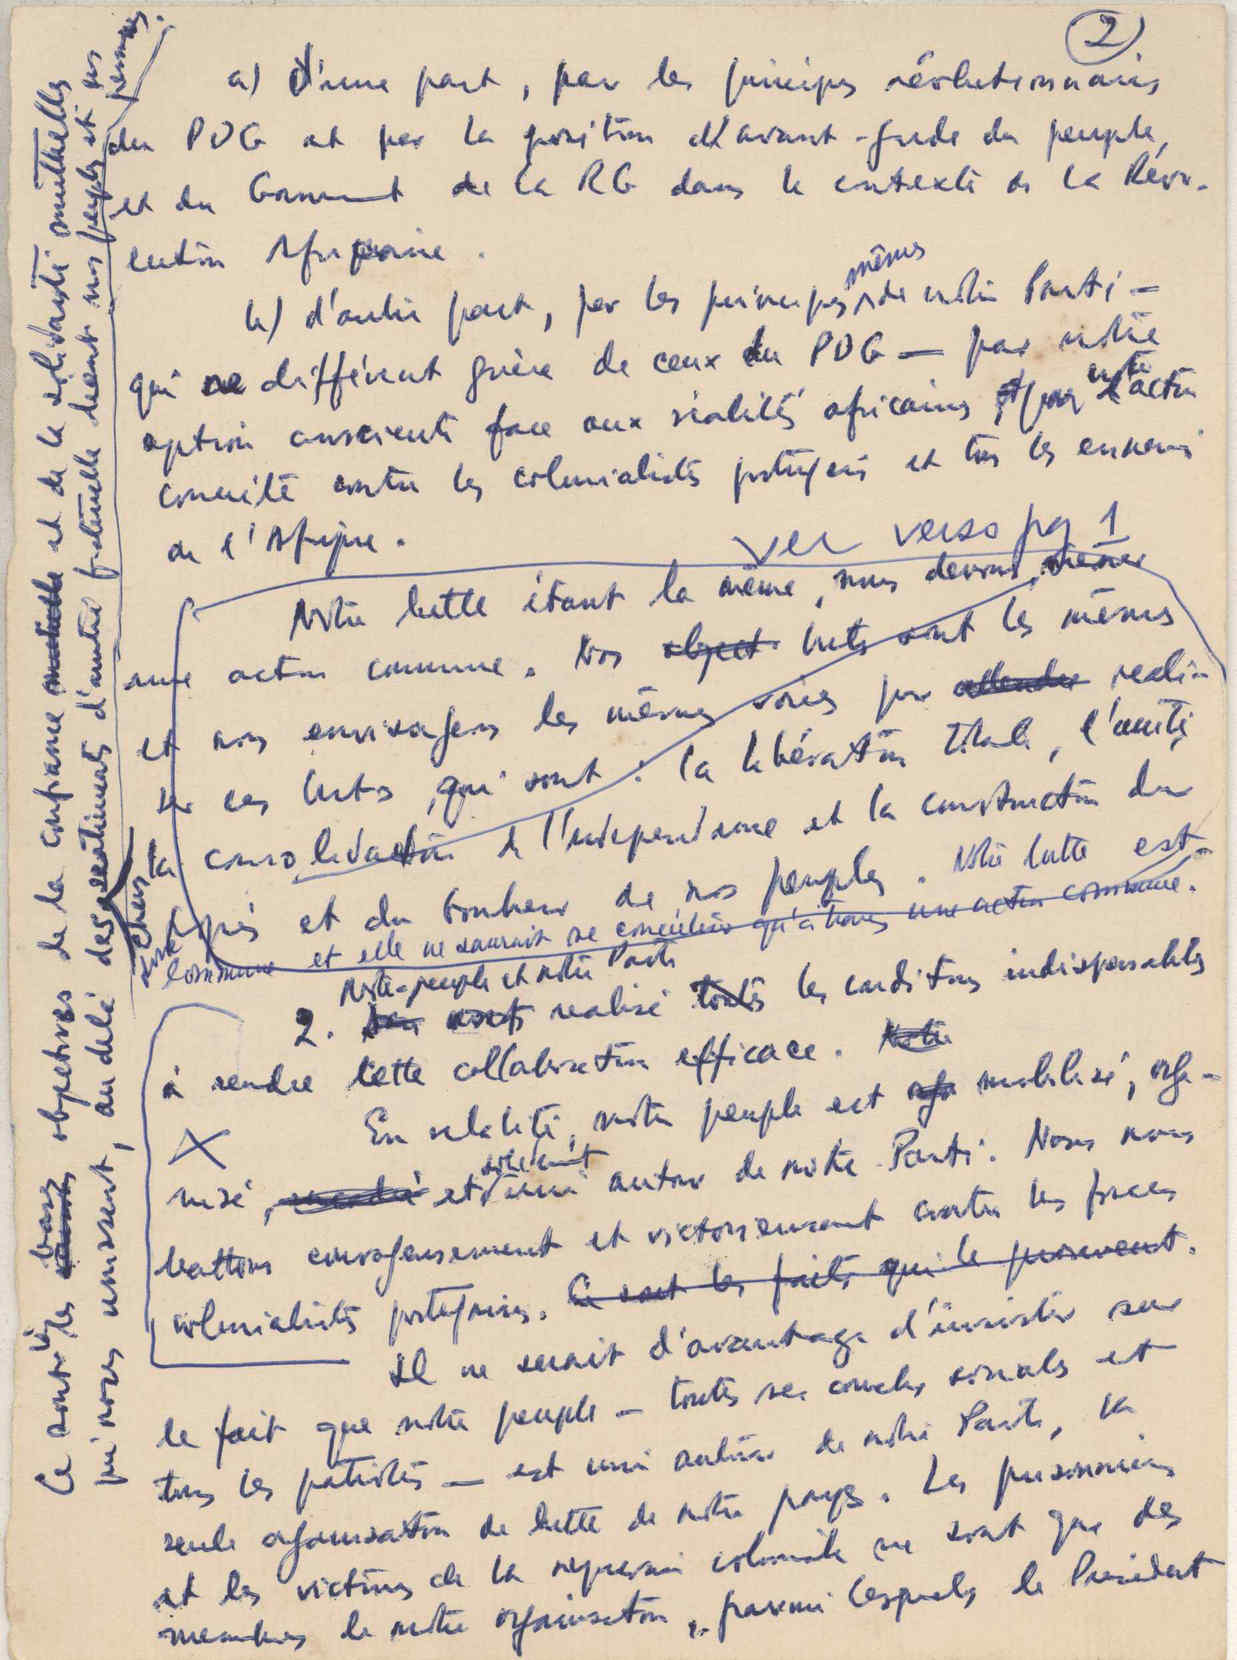 2
a) d'une part, par les principes révolutionnaires
du PDG et par la position d'avant-garde du peuple,
et du Gouvernement de la RG dans le contexte de la Révo-
lution Africaine.
b) d'autre part, par les principes mêmes de notre Parti —
qui ne diffèrent guère de ceux du PDG — par notre
option consciente face aux réalités africaines, et par notre action
concrète contre les colonialistes portugais et tous les ennemis
de l'Afrique.
ver verso pg 1
Notre lutte étant la même, nous devons mener
une action commune. Nos object. buts sont les mêmes
et nos envisageons les mêmes voies pour attendre reali-
ser ces buts, qui sont: la libération totale, l'unité,
la consolidation de l'independance et la construction du
progrès et du bonheur de nos peuples. Notre lutte est
commune et elle ne saurait se concrétiser qu'à travers une action commune.
2. Notre peuple et notre Parti realisé toutes les conditions indispensables
à rendre cette collaboration efficace. Notre
X
En réalité, notre peuple est mobilisé, orga-
nisé, et solidement uni autour de notre Parti. Nous nous
battons courageusement et victorieusement contre les forces
colonialistes portugaises. Ce sont les faits qui le prouvent.
Il ne serait d'avantage d'insister sur
le fait que notre peuple — toutes ses couches sociales et
tous les patriotes — est uni autour de notre Parti, la
seule organisation de lutte de notre pays. Les prisonniers
et les victimes de la repression coloniale ne sont que des
membres de notre organisation, parmi lesquels le President
Ce sont là les bases objectives de la confiance mutuelle et de la solidarité mutuelles
qui nous unissent, au delà des sentiments d'amitié fraternelle liant nos peuples et nos
chers